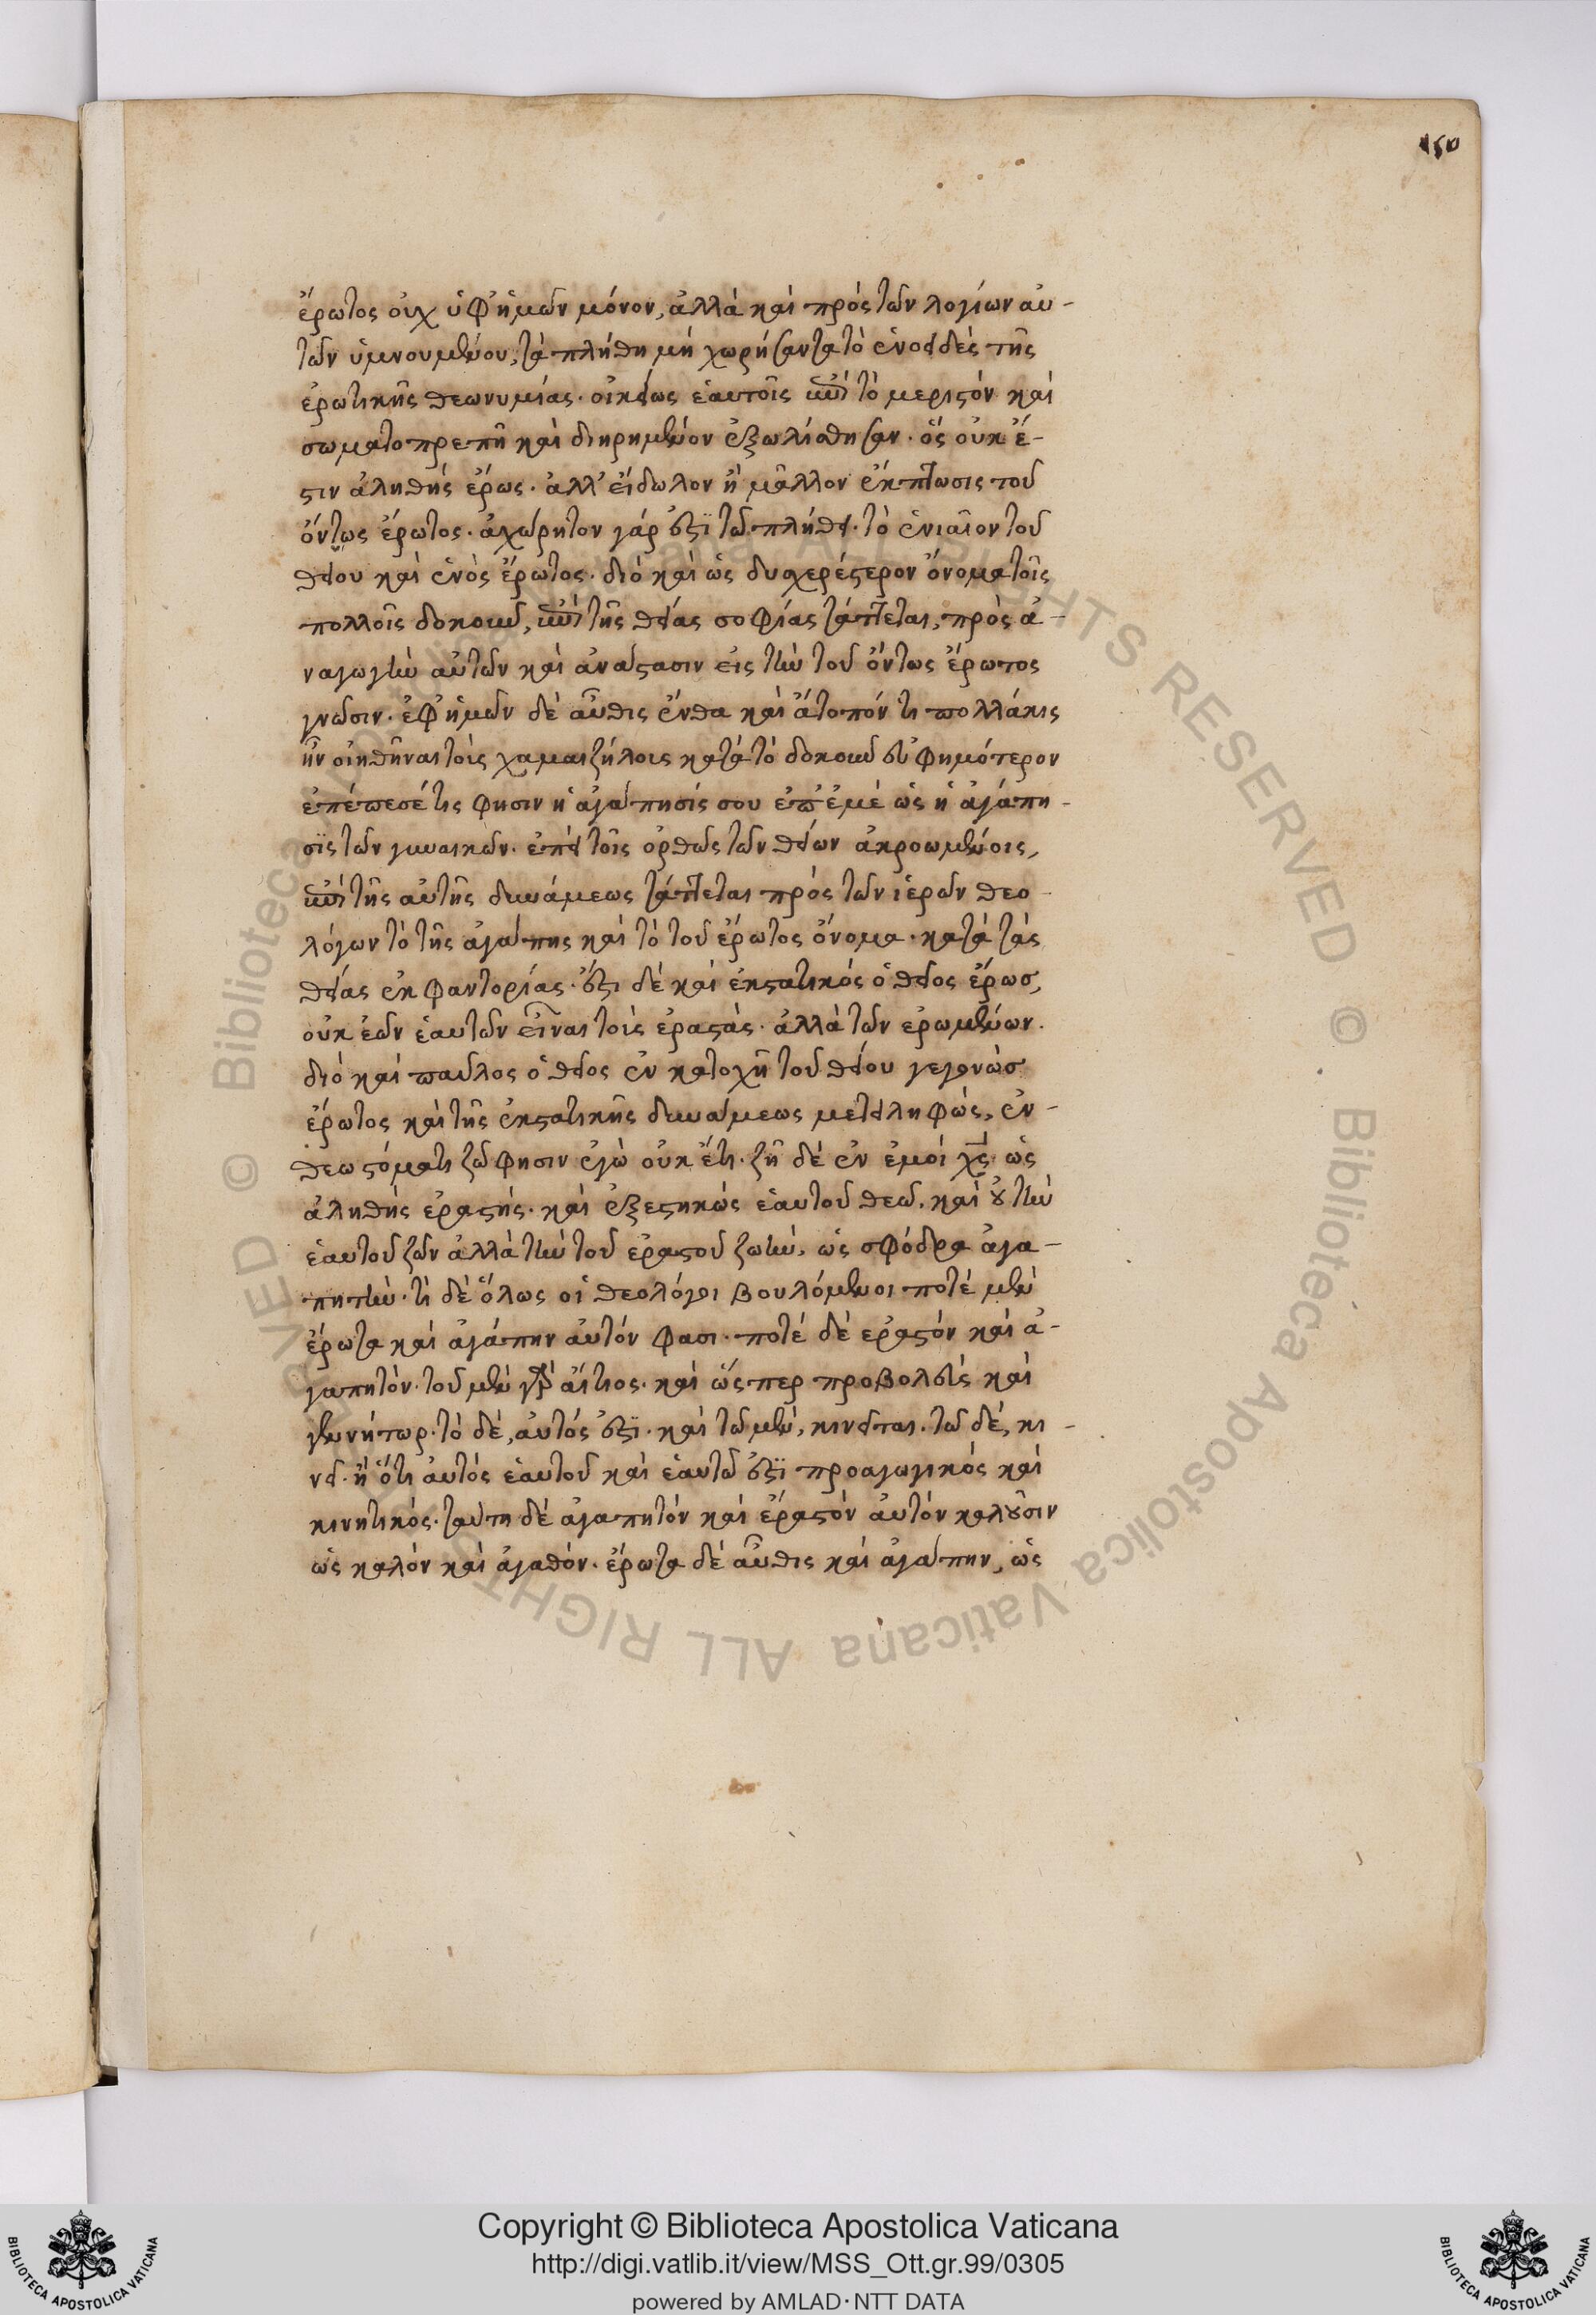 150
ἔρωτος οὐχ ὑφ' ἡμῶν μόνον, ἀλλὰ καὶ πρὸς τῶν λογίων αὐ-
τῶν ὑμνουμένου, τὰ πλήθη μὴ χωρήσαντα τὸ ἑνοειδὲς τῆς
ἐρωτικῆς θεωνυμίας. οἰκείως ἑαυτοῖς ἐπὶ τὸ μεριστὸν καὶ
σωματοπρεπῆ καὶ διηρημένον ἐξωλίσθησαν. ὃς οὐκ ἔ-
στιν ἀληθὴς ἔρως. ἀλλ' εἴδωλον ἢ μᾶλλον ἔκπτωσις τοῦ
ὄντως ἔρωτος. ἀχώρητον γάρ ἐστι τῶ πλήθει. τὸ ἑνιαῖον τοῦ
θείου καὶ ἑνὸς ἔρωτος. διὸ καὶ ὡς δυσχερέστερον ὄνομα τοῖς
πολλοῖς δοκοῦν, ἐπὶ τῆς θείας σοφίας τάττεται, πρὸς ἀ-
ναγωγὴν αὐτῶν καὶ ἀνάστασιν εἰς τὴν τοῦ ὄντως ἔρωτος
γνῶσιν. ἐφ' ἡμῶν δὲ αὖθις ἔνθα καὶ ἄτοπόν τι πολλάκις
ἦν οἰηθῆναι τοῖς χαμαιζήλοις κατὰ τὸ δοκοῦν εὐφημότερον
ἐπέπεσέ τις φησιν ἡ ἀγάπησίς σου ἐπ' ἐμὲ ὡς ἡ ἀγάπη-
σις τῶν γυναικῶν. ἐπεὶ τοῖς ὀρθῶς τῶν θείων ἀκροωμένοις,
ἐπὶ τῆς αὐτῆς δυνάμεως τάττεται πρὸς τῶν ἱερῶν θεο-
λόγων τὸ τῆς ἀγάπης καὶ τὸ τοῦ ἔρωτος ὄνομα. κατὰ τὰς
θείας ἐκφαντορίας. ἔστι δὲ καὶ ἐκστατικὸς ὁ θεῖος ἔρως,
οὐκ ἐῶν ἑαυτῶν εἶναι τοὺς ἐραστάς. ἀλλὰ τῶν ἐρωμένων.
διὸ καὶ παῦλος ὁ θεῖος ἐν κατοχῆ τοῦ θείου γεγονὼς
ἔρωτος καὶ τῆς ἐκστατικῆς δυνάμεως μετειληφὼς, ἐν-
θέω στόματι ζῶ φησιν ἐγὼ οὐκ ἔτι. ζῆ δὲ ἐν ἐμοὶ χς. ὡς
ἀληθὴς ἐραστής. καὶ ἐξεστηκὼς ἑαυτοῦ θεῶ. καὶ οὐ τὴν
ἑαυτοῦ ζῶν ἀλλὰ τὴν τοῦ ἐραστοῦ ζωὴν, ὡς σφόδρα ἀγα-
πητήν. τί δὲ ὅλως οἱ θεολόγοι βουλόμενοι ποτὲ μὲν
ἔρωτα καὶ ἀγάπην αὐτόν φασι. ποτὲ δὲ ἐραστὸν καὶ ἀ-
γαπητόν. τοῦ μὲν γὰρ αἴτιος. καὶ ὥσπερ προβολεὺς καὶ
γεννήτωρ. τὸ δὲ, αὐτός ἐστι. καὶ τῶ μὲν, κινεῖται. τῶ δὲ, κι-
νεῖ. ἢ ὅτι αὐτὸς ἑαυτοῦ καὶ ἑαυτῶ ἐστι προαγωγικὸς καὶ
κινητικός. ταύτη δὲ ἀγαπητὸν καὶ ἐραστὸν αὐτὸν καλοῦσιν
ὡς καλὸν καὶ ἀγαθόν. ἔρωτα δὲ αὖθις καὶ ἀγάπην, ὡς
© Biblioteca Apostolica Vaticana ALL RIGHTS RESERVED
Copyright © Biblioteca Apostolica Vaticana
http://digi.vatlib.it/view/MSS_Ott.gr.99/0305
powered by AMLAD·NTT DATA
BIBLIOTECA APOSTOLICA VATICANA
BIBLIOTECA APOSTOLICA VATICANA